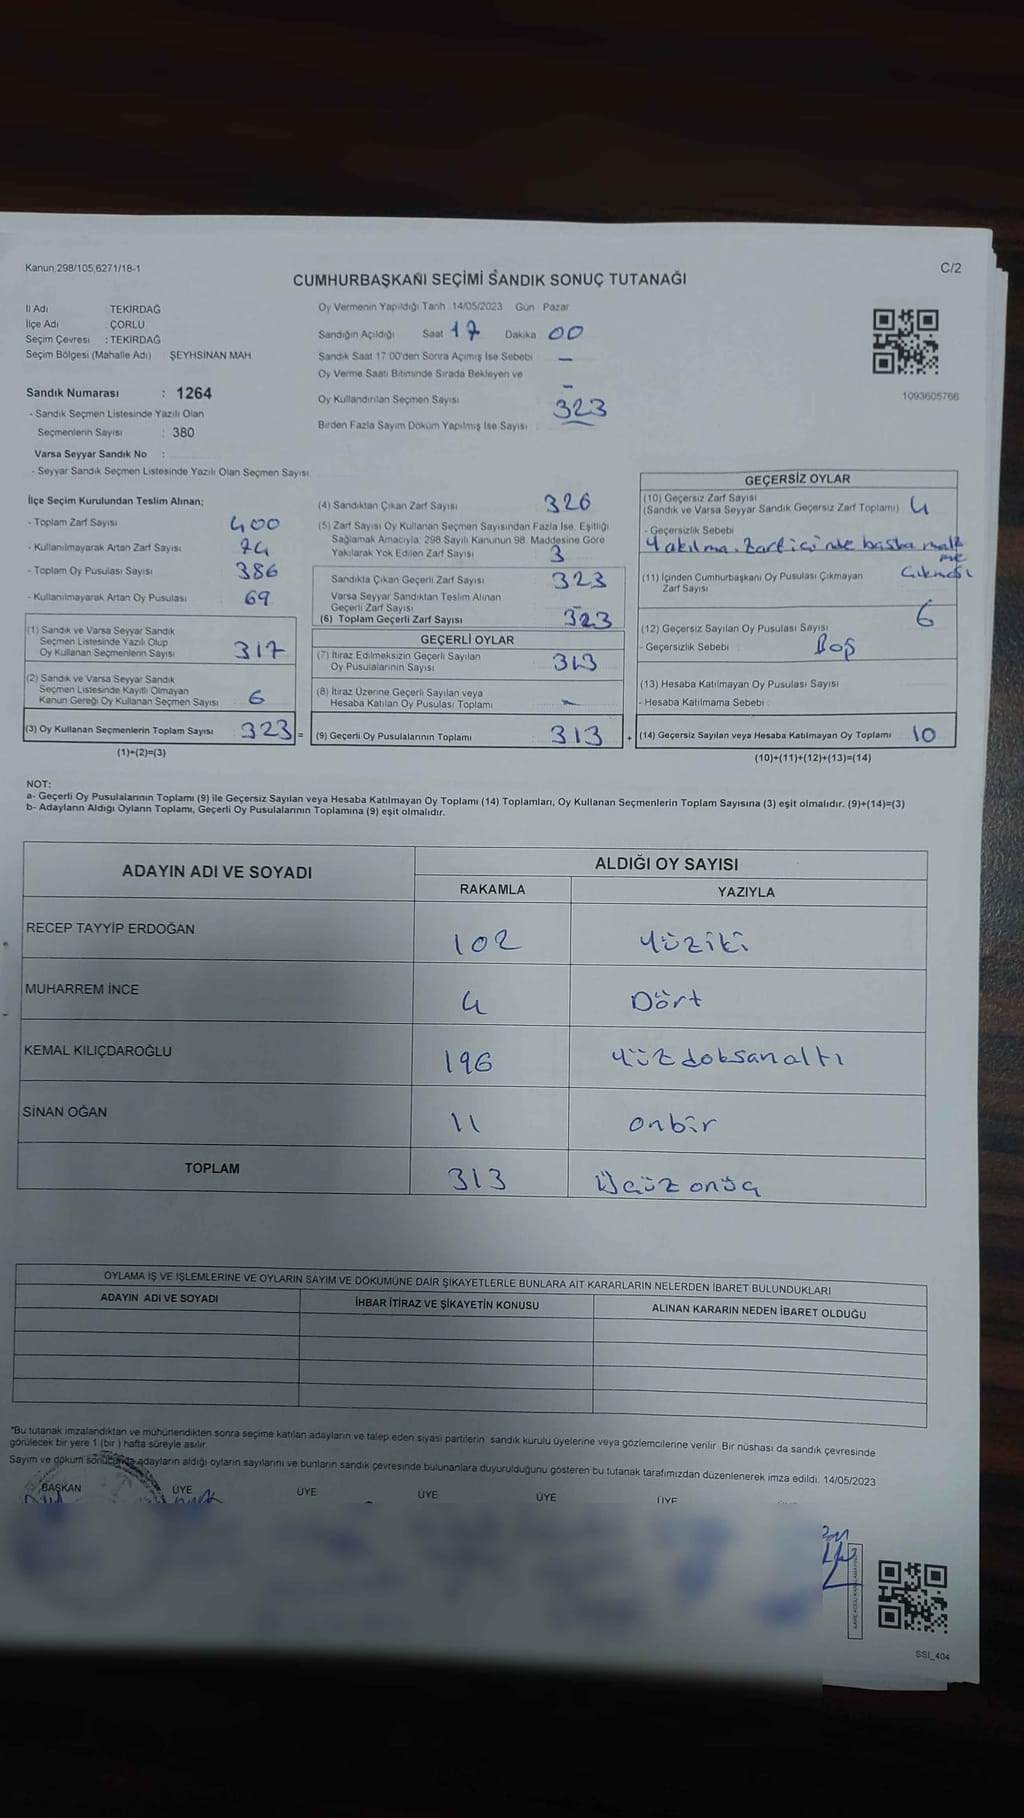 Kanun 298/105,6271/18-1
C/2
CUMHURBAŞKANI SEÇİMİ SANDIK SONUÇ TUTANAĞI
İl Adı TEKİRDAĞ
İlçe Adı ÇORLU
Seçim Çevresi : TEKİRDAĞ
Seçim Bölgesi (Mahalle Adı) ŞEYHSİNAN MAH
Sandık Numarası : 1264
- Sandık Seçmen Listesinde Yazılı Olan
Seçmenlerin Sayısı : 380
Varsa Seyyar Sandık No :
- Seyyar Sandık Seçmen Listesinde Yazılı Olan Seçmen Sayısı:
Oy Vermenin Yapıldığı Tarih 14/05/2023 Gün Pazar
Sandığın Açıldığı Saat 17 Dakika 00
Sandık Saat 17:00'den Sonra Açımış İse Sebebi –
Oy Verme Saati Bitiminde Sırada Bekleyen ve –
Oy Kullandırılan Seçmen Sayısı 323
Birden Fazla Sayım Döküm Yapılmış İse Sayısı
1093605766
İlçe Seçim Kurulundan Teslim Alınan;
- Toplam Zarf Sayısı 400
- Kullanılmayarak Artan Zarf Sayısı 74
- Toplam Oy Pusulası Sayısı 386
- Kullanılmayarak Artan Oy Pusulası 69
(1) Sandık ve Varsa Seyyar Sandık
Seçmen Listesinde Yazılı Olup
Oy Kullanan Seçmenlerin Sayısı 317
(2) Sandık ve Varsa Seyyar Sandık
Seçmen Listesinde Kayıtlı Olmayan
Kanun Gereği Oy Kullanan Seçmen Sayısı 6
(3) Oy Kullanan Seçmenlerin Toplam Sayısı 323 =
(1)+(2)=(3)
(4) Sandıktan Çıkan Zarf Sayısı 326
(5) Zarf Sayısı Oy Kullanan Seçmen Sayısından Fazla İse, Eşitliği
Sağlamak Amacıyla, 298 Sayılı Kanunun 98. Maddesine Göre
Yakılarak Yok Edilen Zarf Sayısı 3
Sandıkta Çıkan Geçerli Zarf Sayısı 323
Varsa Seyyar Sandıktan Teslim Alınan
Geçerli Zarf Sayısı –
(6) Toplam Geçerli Zarf Sayısı 323
GEÇERLİ OYLAR
(7) İtiraz Edilmeksizin Geçerli Sayılan
Oy Pusulalarının Sayısı 313
(8) İtiraz Üzerine Geçerli Sayılan veya
Hesaba Katılan Oy Pusulası Toplamı –
(9) Geçerli Oy Pusulalarının Toplamı 313 +
GEÇERSİZ OYLAR
(10) Geçersiz Zarf Sayısı
(Sandık ve Varsa Seyyar Sandık Geçersiz Zarf Toplamı) 4
- Geçersizlik Sebebi
Yakılma. Zart içinde başka malzeme
Çıkması
(11) İçinden Cumhurbaşkanı Oy Pusulası Çıkmayan
Zarf Sayısı
(12) Geçersiz Sayılan Oy Pusulası Sayısı 6
- Geçersizlik Sebebi Boş
(13) Hesaba Katılmayan Oy Pusulası Sayısı
- Hesaba Katılmama Sebebi
(14) Geçersiz Sayılan veya Hesaba Katılmayan Oy Toplamı 10
(10)+(11)+(12)+(13)=(14)
NOT:
a- Geçerli Oy Pusulalarının Toplamı (9) ile Geçersiz Sayılan veya Hesaba Katılmayan Oy Toplamı (14) Toplamları, Oy Kullanan Seçmenlerin Toplam Sayısına (3) eşit olmalıdır. (9)+(14)=(3)
b- Adayların Aldığı Oyların Toplamı, Geçerli Oy Pusulalarının Toplamına (9) eşit olmalıdır.
ADAYIN ADI VE SOYADI ALDIĞI OY SAYISI
RAKAMLA YAZIYLA
RECEP TAYYİP ERDOĞAN 102 Yüziki
MUHARREM İNCE 4 Dört
KEMAL KILIÇDAROĞLU 196 Yüz doksan altı
SİNAN OĞAN 11 onbir
TOPLAM 313 Üçyüz onüç
OYLAMA İŞ VE İŞLEMLERİNE VE OYLARIN SAYIM VE DÖKÜMÜNE DAİR ŞİKAYETLERLE BUNLARA AİT KARARLARIN NELERDEN İBARET BULUNDUKLARI
ADAYIN ADI VE SOYADI İHBAR İTİRAZ VE ŞİKAYETİN KONUSU ALINAN KARARIN NEDEN İBARET OLDUĞU
*Bu tutanak imzalandıktan ve mühürlendikten sonra seçime katılan adayların ve talep eden siyasi partilerin sandık kurulu üyelerine veya gözlemcilerine verilir. Bir nüshası da sandık çevresinde
görülecek bir yere 1 (bir ) hafta süreyle asılır.
Sayım ve döküm sonucunda adayların aldığı oyların sayılarını ve bunların sandık çevresinde bulunanlara duyurulduğunu gösteren bu tutanak tarafımızdan düzenlenerek imza edildi. 14/05/2023
BAŞKAN ÜYE ÜYE ÜYE ÜYE ÜYE
SSI_404